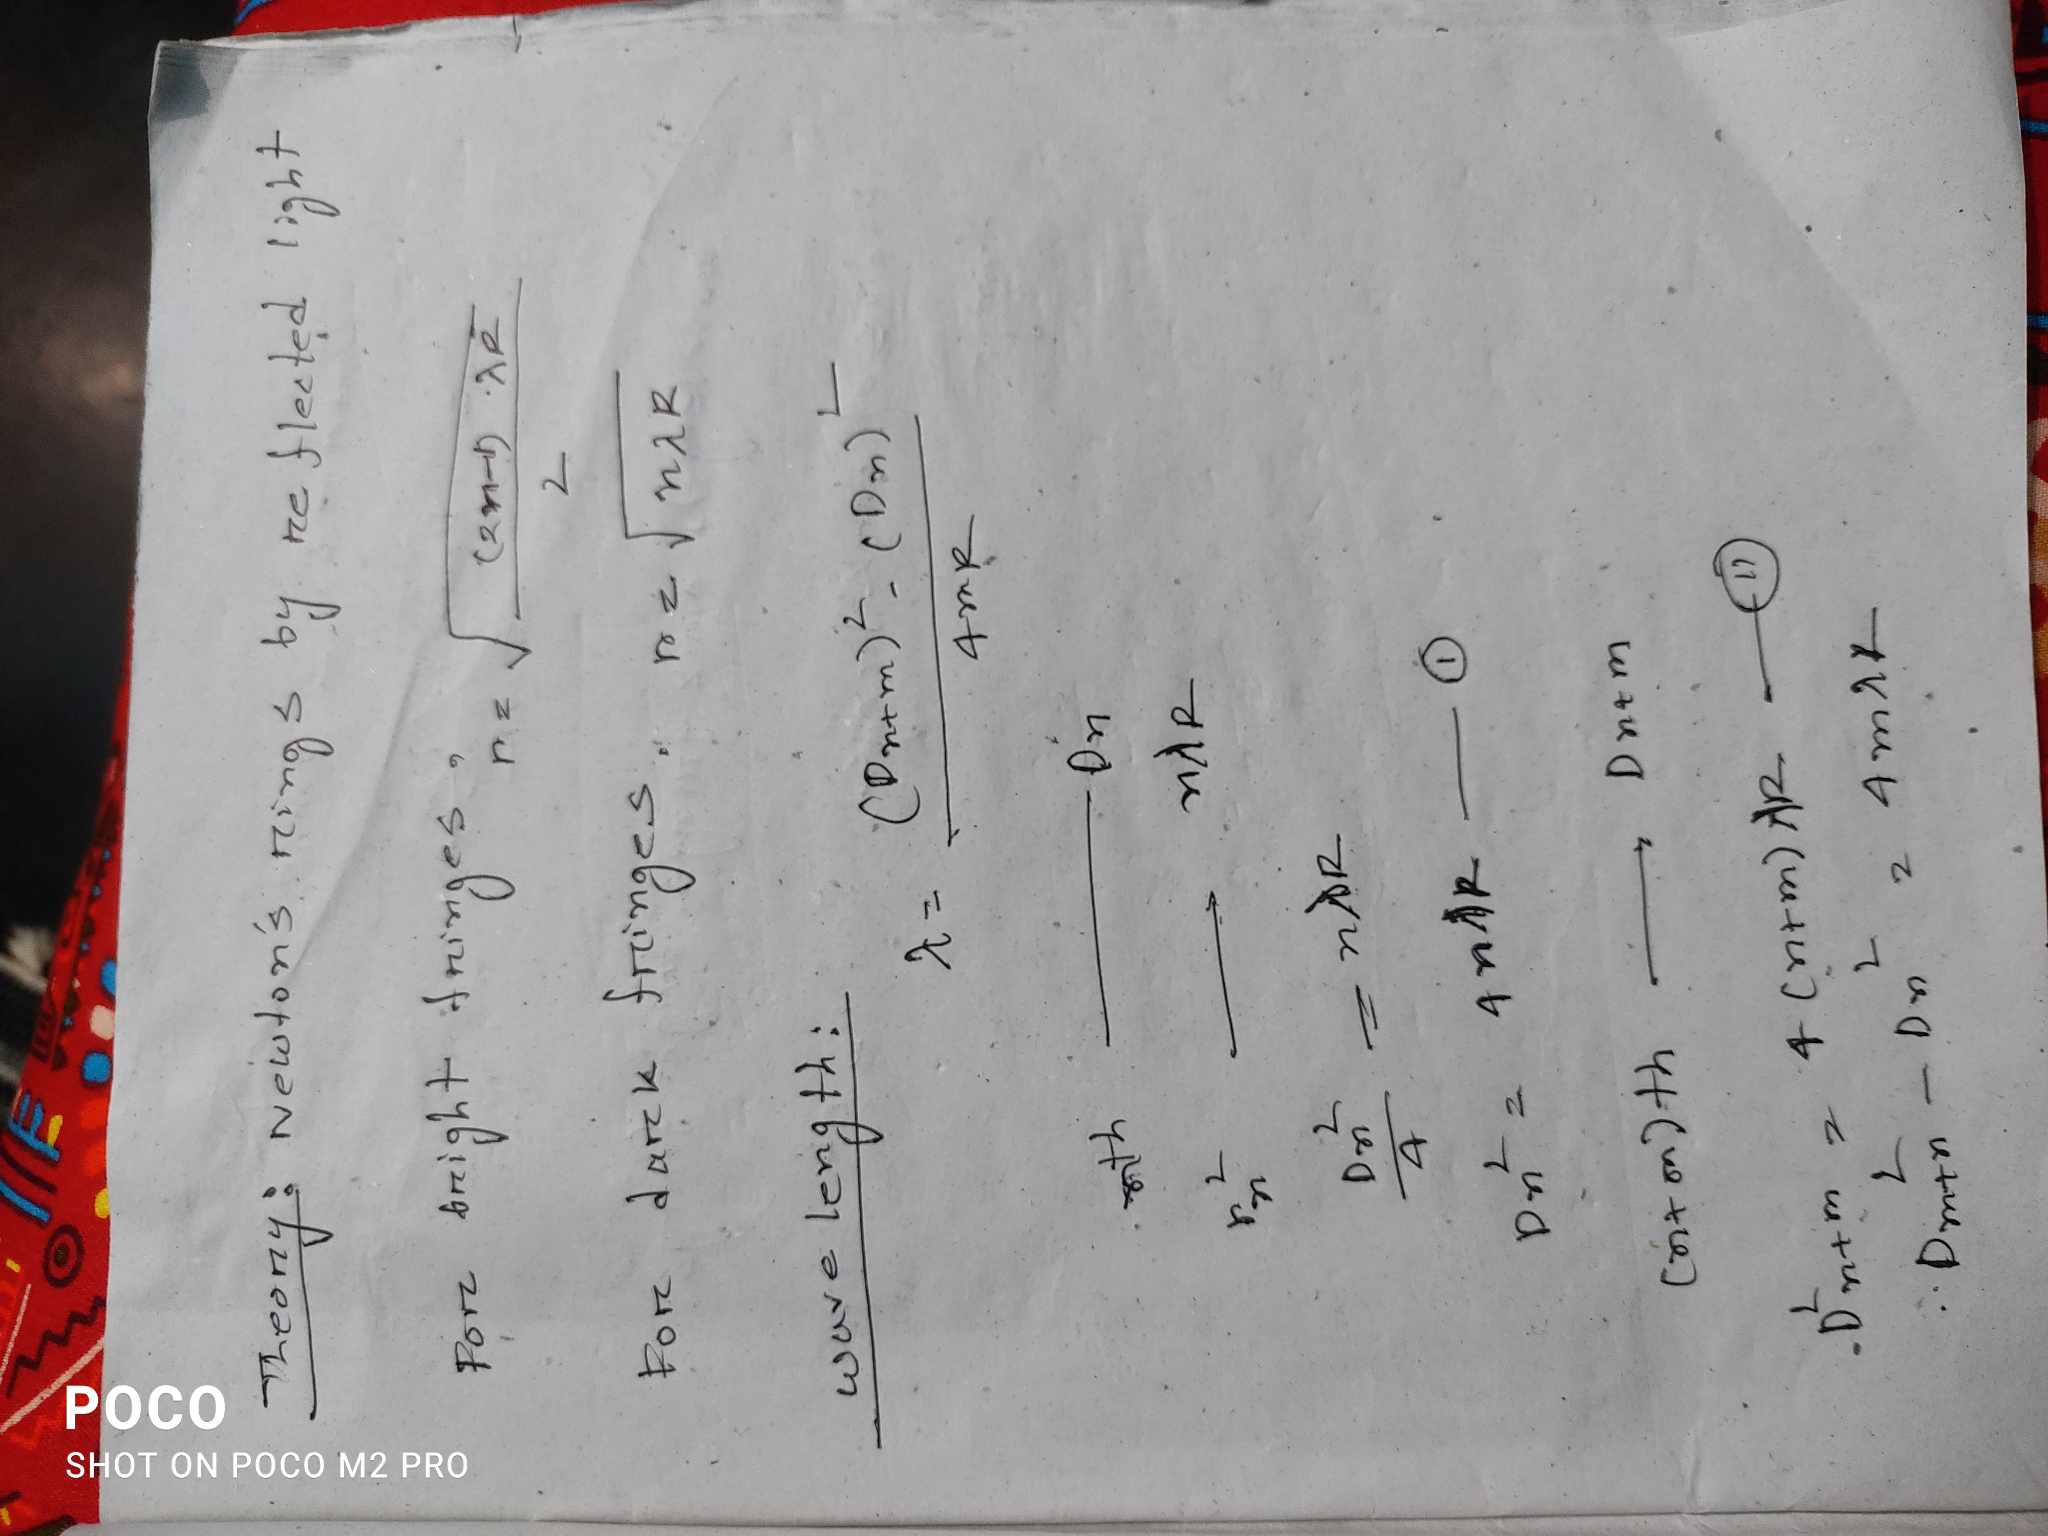 POCO
SHOT ON POCO M2 PRO
Theory: Newton's rings by reflected light
For bright fringes, r = √((2n-1) λR / 2)
For dark fringes. r = √(nλR)
wave length:
λ = ((Dn+m)² - (Dn)²) / 4mR
nth — Dn
rn² → nλR
Dn²/4 = nλR
Dn² = 4nλR — ①
(n+m)th → Dn+m
D²n+m = 4(n+m)λR — ⑪
∴ D²m+n - Dn² = 4mλR